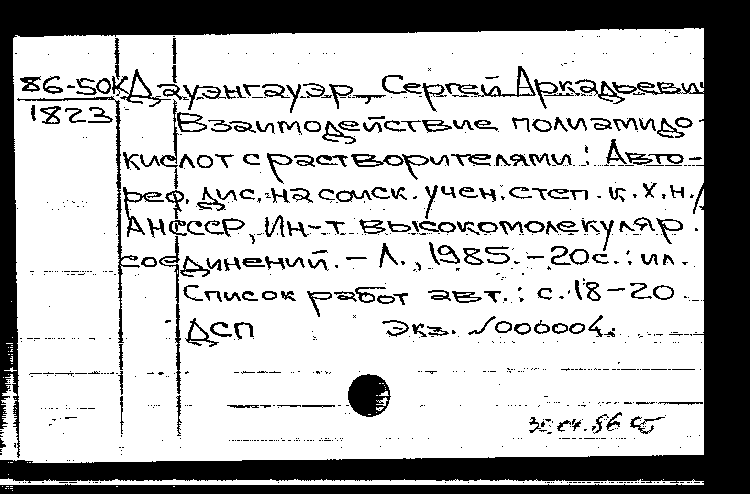 86-50К Дауэнгауэр, Сергей Аркадьевич
1823
Взаимодействие полиамидо-
кислот с растворителями: Авто-
реф. дис. на соиск. учен. степ. к.х.н./
АНСССР, Ин-т высокомолекуляр.
соединений. – Л., 1985. – 20с.: ил.
Список работ авт.: с.18–20.
ДСП Экз. №000004.